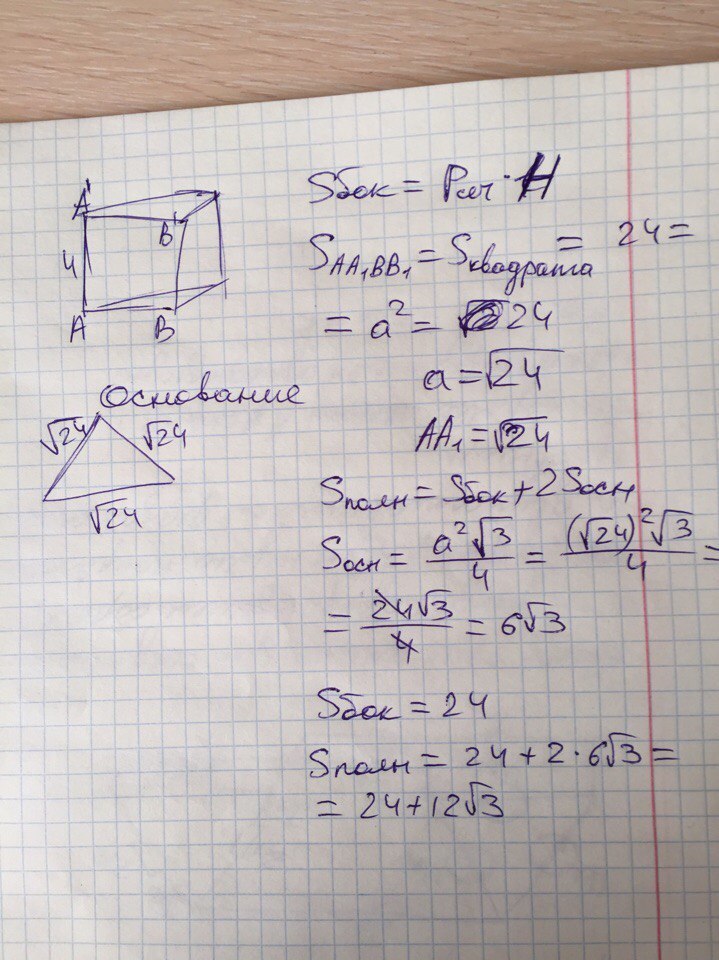 A'
B'
4
A B
Основание
√24 √24
√24
Sбок = Pсеч · H
SAA₁BB₁ = Sквадрата = 24 =
= a² = 24
a = √24
AA₁ = √24
Sполн = Sбок + 2Sосн
Sосн = a²√3/4 = (√24)²√3/4 =
= 24√3/4 = 6√3
Sбок = 24
Sполн = 24 + 2 · 6√3 =
= 24 + 12√3